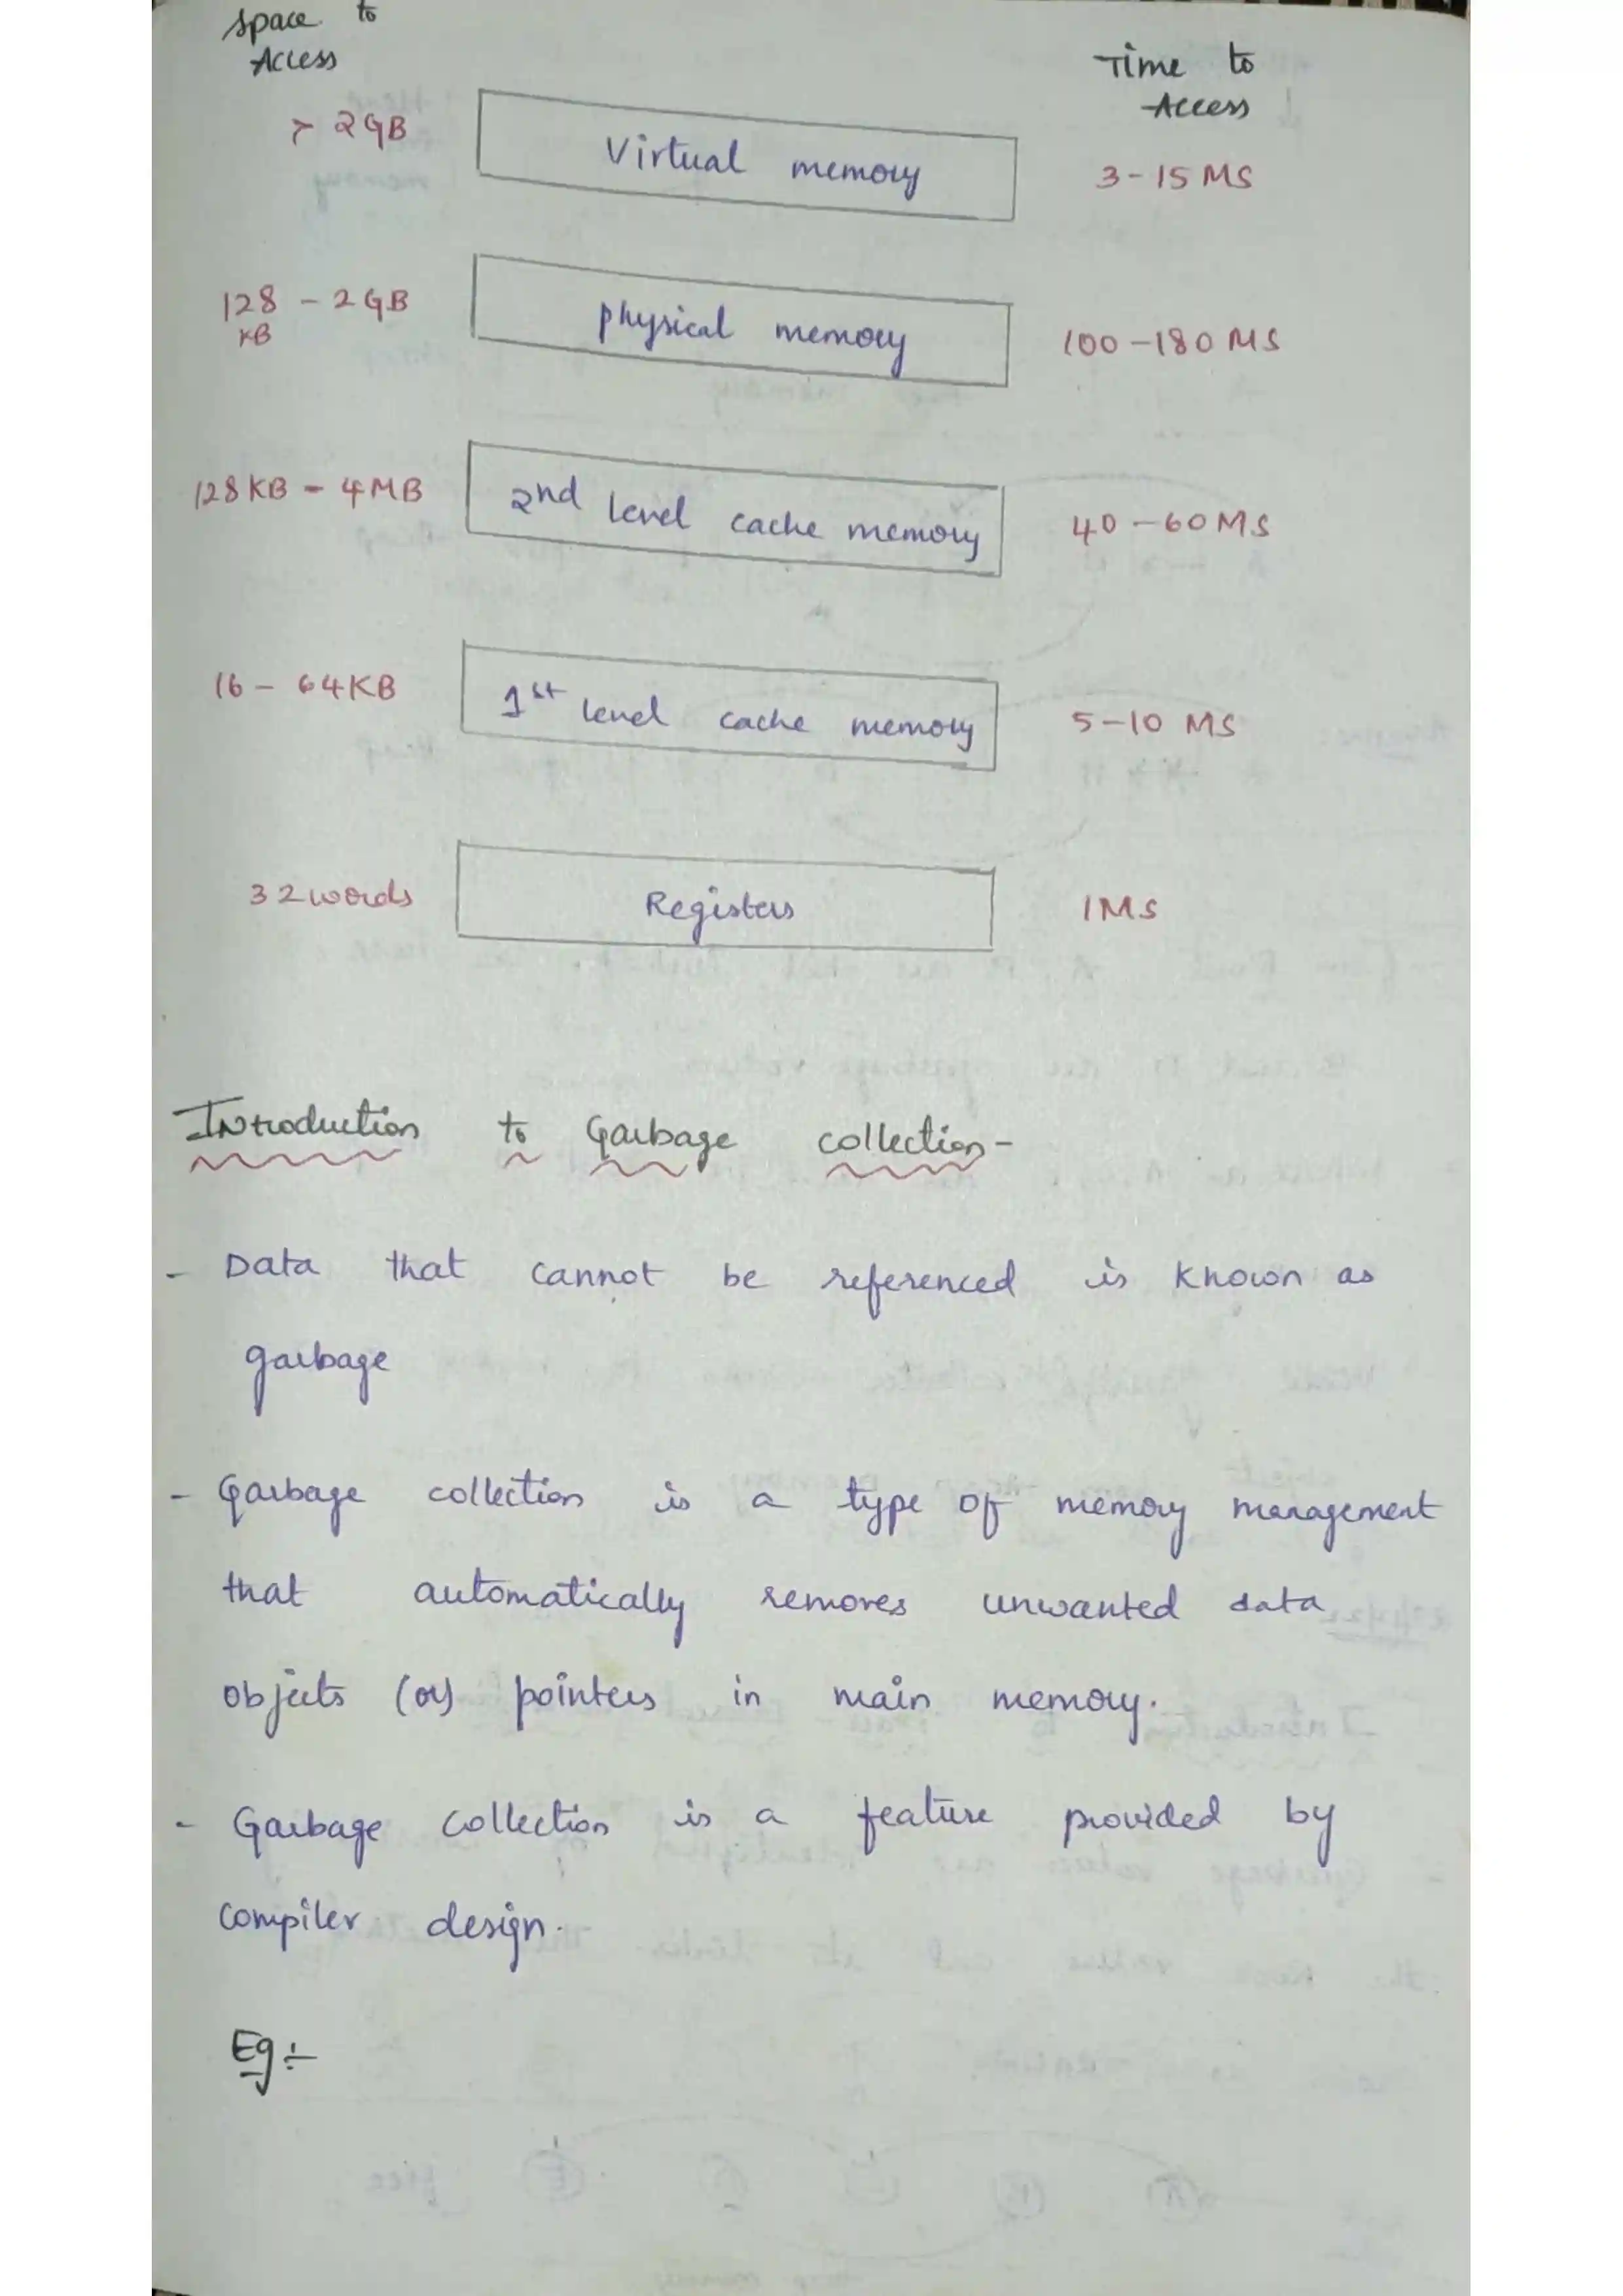 Space to
Access
Time to
Access
> 2GB
Virtual memory
3-15 MS
128 - 2GB
KB
physical memory
100-180 MS
128KB - 4MB
2nd level cache memory
40-60MS
16 - 64KB
1st level cache memory
5-10 MS
32words
Registers
1MS
Introduction to Garbage collection-
- Data that cannot be referenced is known as
garbage
- Garbage collection is a type of memory management
that automatically removes unwanted data
objects (or) pointers in main memory.
- Garbage collection is a feature provided by
compiler design.
Eg:-